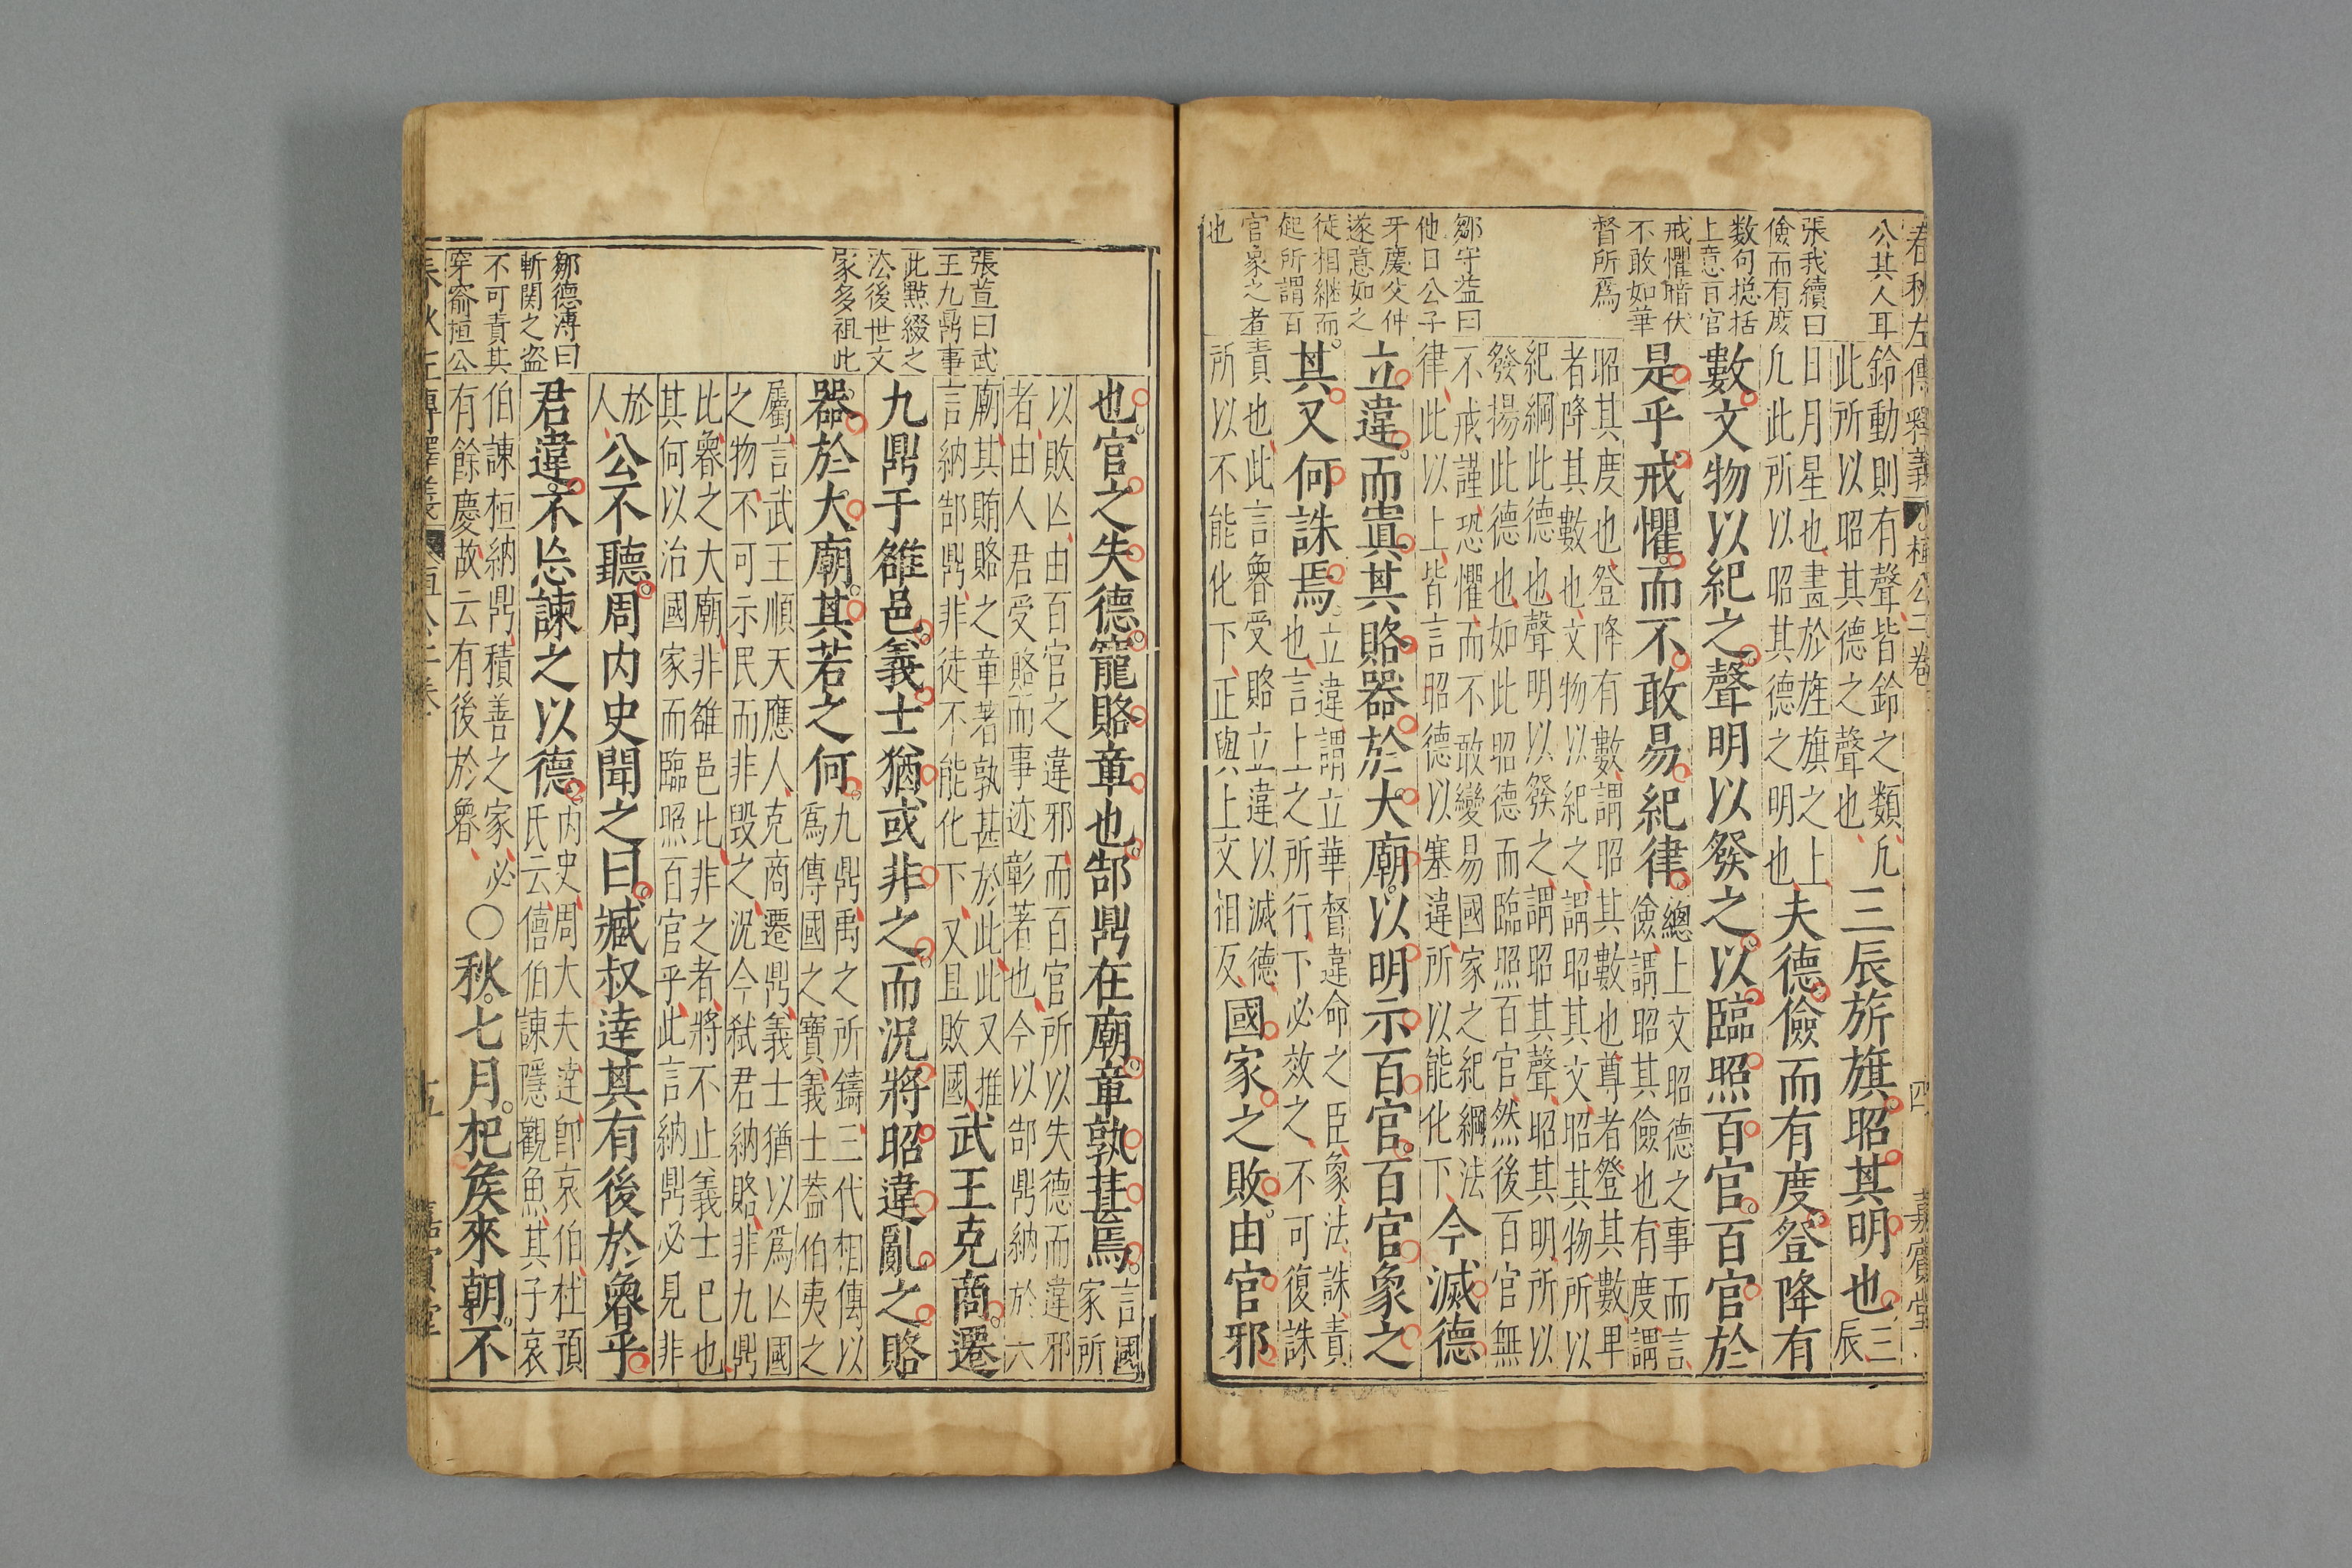 春秋左傳釋義 桓公二卷 四 嘉賓堂
公其人耳
張我續曰
儉而有度
数句揔括
上意百官
戒懼暗伏
不敢如華
督所爲
鄒守益曰
他日公子
牙慶父仲
遂意如之
徒相継而
起所謂百
官象之者
也
鈴動則有聲皆鈴之類凢
此所以昭其德之聲也
三辰旂旗昭其明也
三
辰
日月星也畫於旌旗之上
凢此所以昭其德之明也
夫德儉而有度登降有
數文物以紀之聲明以發之以臨照百官百官於
是乎戒懼而不敢易紀律
總上文昭德之事而言
儉謂昭其儉也有度謂
昭其度也登降有數謂昭其數也尊者登其數卑
者降其數也文物以紀之謂昭其文昭其物所以
紀綱此德也聲明以發之謂昭其聲昭其明所以
發揚此德也如此昭德而臨照百官然後百官無
不戒謹恐懼而不敢變易國家之紀綱法
律此以上皆言昭德以塞違所以能化下
今滅德
立違而寘其賂器於大廟以明示百官百官象之
其又何誅焉
立違謂立華督違命之臣象法誅責
也言上之所行下必效之不可復誅
責也此言魯受賂立違以滅德
所以不能化下正與上文相反
國家之敗由官邪
也官之失德寵賂章也郜鼎在廟章孰甚焉
言國
家所
以敗亾由百官之違邪而百官所以失德而違邪
者由人君受賂而事迹彰著也今以郜鼎納於六
廟其賄賂之章著孰甚於此此又推
言納郜鼎非徒不能化下又且敗國
武王克商遷
九鼎于雒邑義士猶或非之而況將昭違亂之賂
器於大廟其若之何
九鼎禹之所鑄三代相傳以
爲傳國之寶義士蓋伯夷之
屬言武王順天應人克商遷鼎義士猶以爲亾國
之物不可示民而非毀之況今弒君納賂非九鼎
比魯之大廟非雒邑比非之者將不止義士已也
其何以治國家而臨照百官乎此言納鼎必見非
於
人
公不聽周内史聞之曰臧叔達其有後於魯乎
君違不忘諫之以德
内史周大夫達即哀伯杜預
氏云僖伯諫隱觀魚其子哀
伯諫桓納鼎積善之家必
有餘慶故云有後於魯
○秋七月杞矦來朝不
張萱曰武
王九鼎事
此㸃綴之
法後世文
家多祖此
鄒德溥曰
斬関之盜
不可責其
穿窬桓公